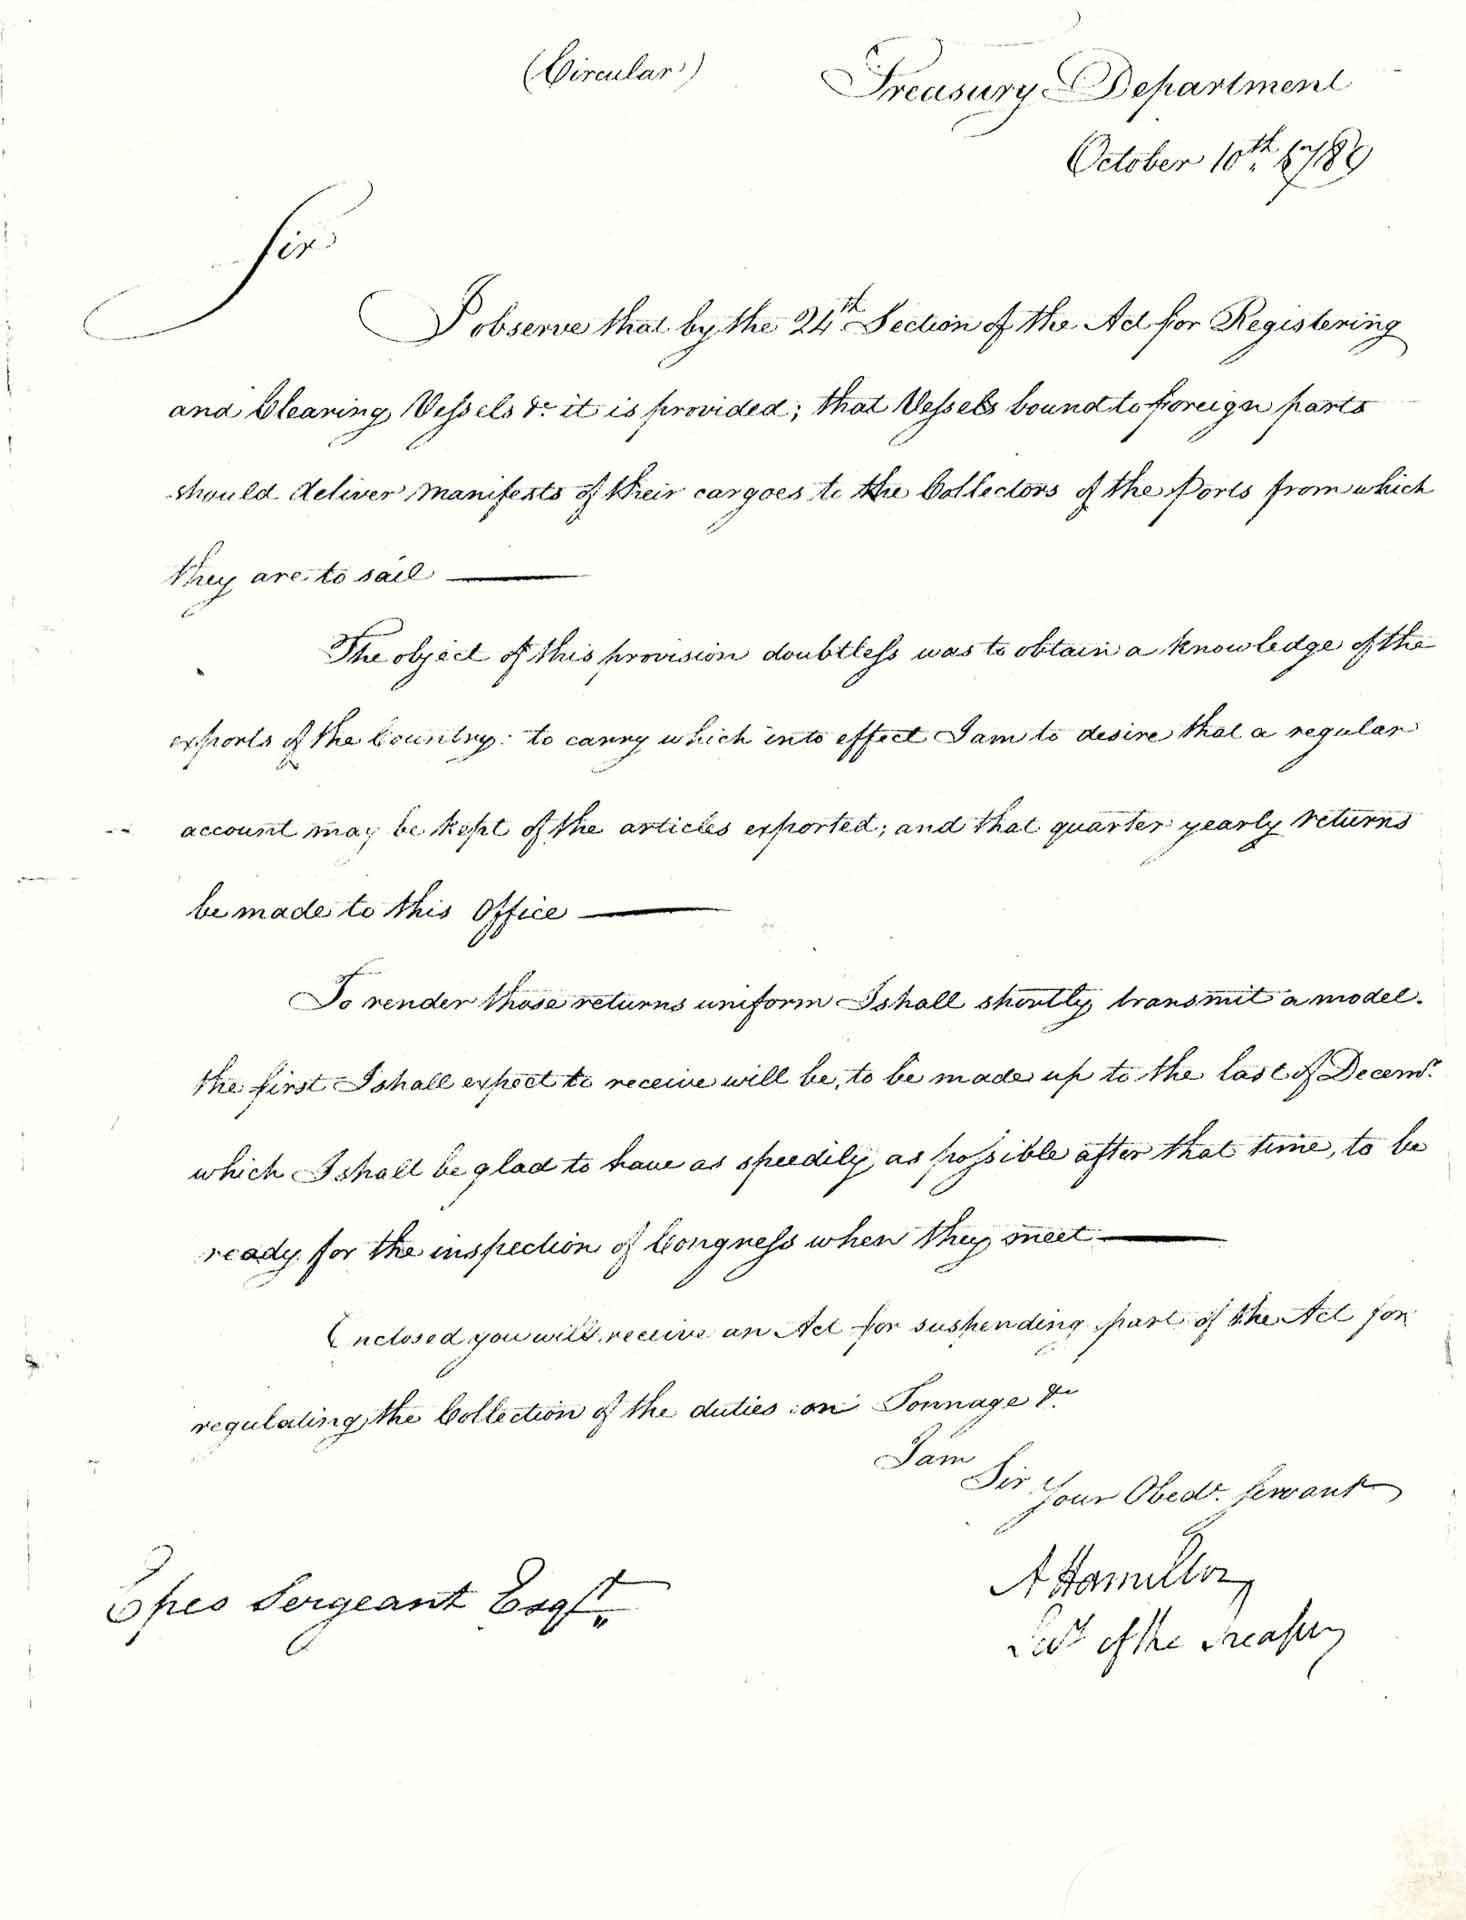 (Circular)
Treasury Department
October 10th. 1789
Sir
I observe that by the 24th. Section of the Act for Registering
and Clearing Vessels &c. it is provided; that Vessels bound to foreign parts
should deliver manifests of their cargoes to the Collectors of the Ports from which
they are to sail ———
The object of this provision doubtless was to obtain a knowledge of the
exports of the Country: to carry which into effect I am to desire that a regular
account may be kept of the articles exported; and that quarter yearly returns
be made to this Office ———
To render those returns uniform I shall shortly transmit a model.
the first I shall expect to receive will be, to be made up to the last of Decemr.
which I shall be glad to have as speedily as possible after that time, to be
ready for the inspection of Congress when they meet ———
Enclosed you will receive an Act for suspending part of the Act for
regulating the Collection of the duties on Tonnage &c.
I am
Sir
Your Obedt. servant
A Hamilton
Secy of the Treasury
Epes Sergeant Esqr.